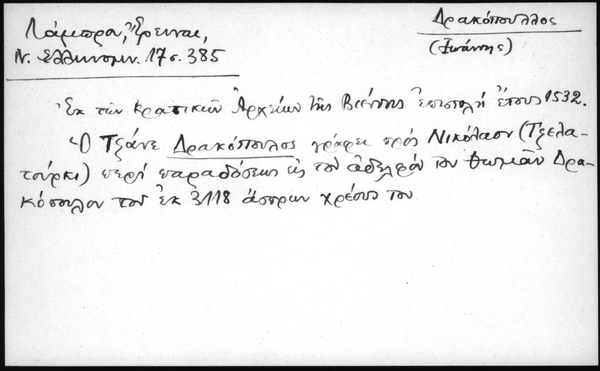 Λάμπρου, Ἔρευναι,
Ν. Ἑλληνομν. 17 σ. 385
Δρακόπουλλος
(Ἰωάννης)
Ἐκ τῶν κρατικῶν Ἀρχείων τῆς Βιέννης ἐπιστολή ἔτους 1532.
Ὁ Τζάνε Δρακόπουλος γράφει πρός Νικόλαον (Τζελα-
τούρκι) περί παραδόσεως εἰς τόν ἀδελφόν του Θωμᾶν Δρα-
κόπουλον τοῦ ἐκ 3118 ἄσπρων χρέους του